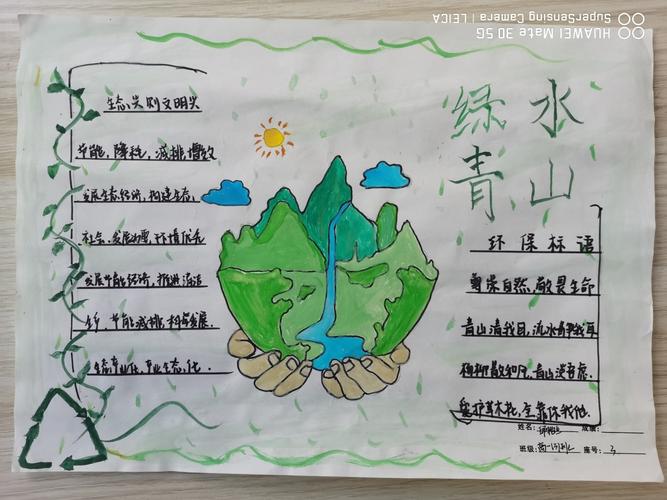 绿水
青山
生态兴则文明兴
节能,降耗,减排,增效
发展生态经济,构建生态
社会,发展 环境优先
发展节能经济,推进清洁
节能减排,构 发展.
生态产业化,产业生态化.
环保标语
尊崇自然,敬畏生命
青山清我目,流水静我耳
杨柳散和风,青山澹吾虑.
爱护草木花,全靠你我他.
姓名: 成绩:
班级: 座号: 3
HUAWEI Mate 30 5G
SuperSensing Camera | LEICA